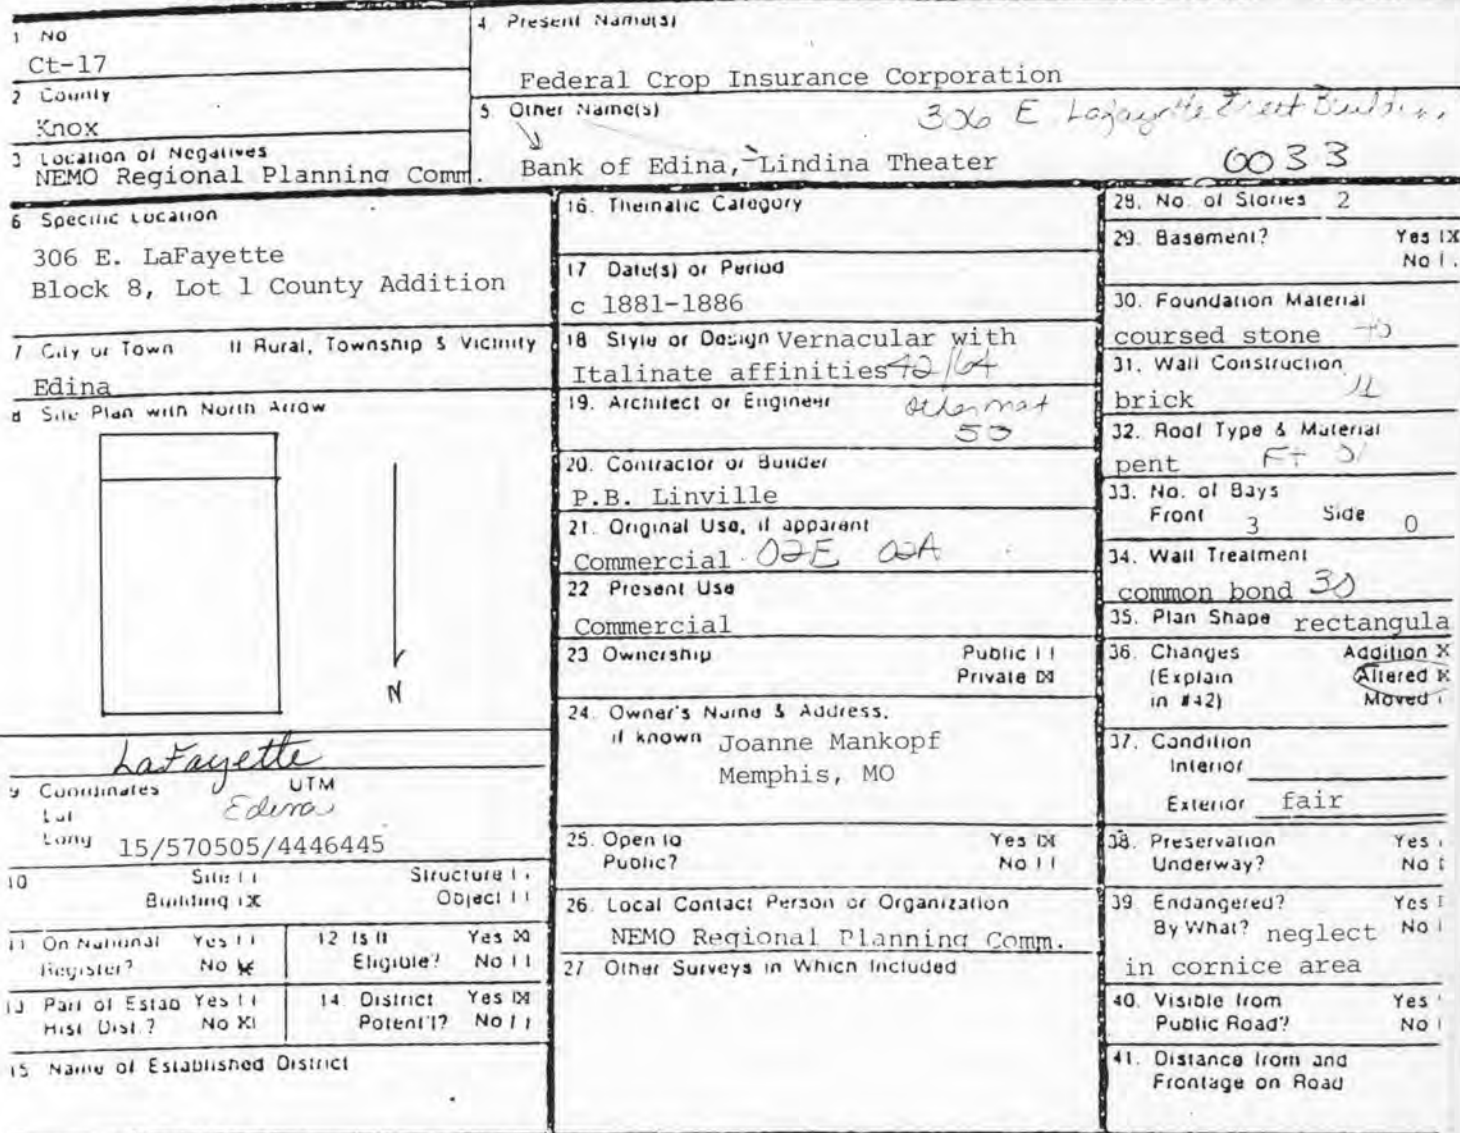 1 No
Ct-17
2 County
Knox
3 Location of Negatives
NEMO Regional Planning Comm.
4. Present Name(s)
Federal Crop Insurance Corporation
5. Other Name(s)
306 E Lafayette Street Building
Bank of Edina, Lindina Theater
0033
6 Specific Location
306 E. LaFayette
Block 8, Lot 1 County Addition
7 City or Town If Rural, Township & Vicinity
Edina
8 Site Plan with North Arrow
N
LaFayette
9 Coordinates UTM
Lat
Edina
Long 15/570505/4446445
10 Site Structure
Building X Object
11 On National Yes
Register? No X
12 Is It Yes X
Eligible? No
13 Part of Estab Yes
Hist. Dist.? No X
14. District Yes X
Potent'l? No
15 Name of Established District
16. Thematic Category
17 Date(s) or Period
c 1881-1886
18 Style or Design Vernacular with
Italinate affinities 42/64
19. Architect or Engineer
50
20. Contractor or Builder
P.B. Linville
21. Original Use, if apparent
Commercial 02E 02A
22 Present Use
Commercial
23 Ownership Public
Private X
24. Owner's Name & Address,
if known Joanne Mankopf
Memphis, MO
25. Open to Yes X
Public? No
26. Local Contact Person or Organization
NEMO Regional Planning Comm.
27 Other Surveys in Which Included
28. No. of Stories 2
29. Basement? Yes X
No
30. Foundation Material
coursed stone
31. Wall Construction
brick 11
32. Roof Type & Material
pent
33. No. of Bays
Front 3 Side 0
34. Wall Treatment
common bond 30
35. Plan Shape rectangula
36. Changes Addition X
(Explain Altered X
in #42) Moved
37. Condition
Interior
Exterior fair
38. Preservation Yes
Underway? No
39. Endangered? Yes
By What? neglect No
in cornice area
40. Visible from Yes
Public Road? No
41. Distance from and
Frontage on Road